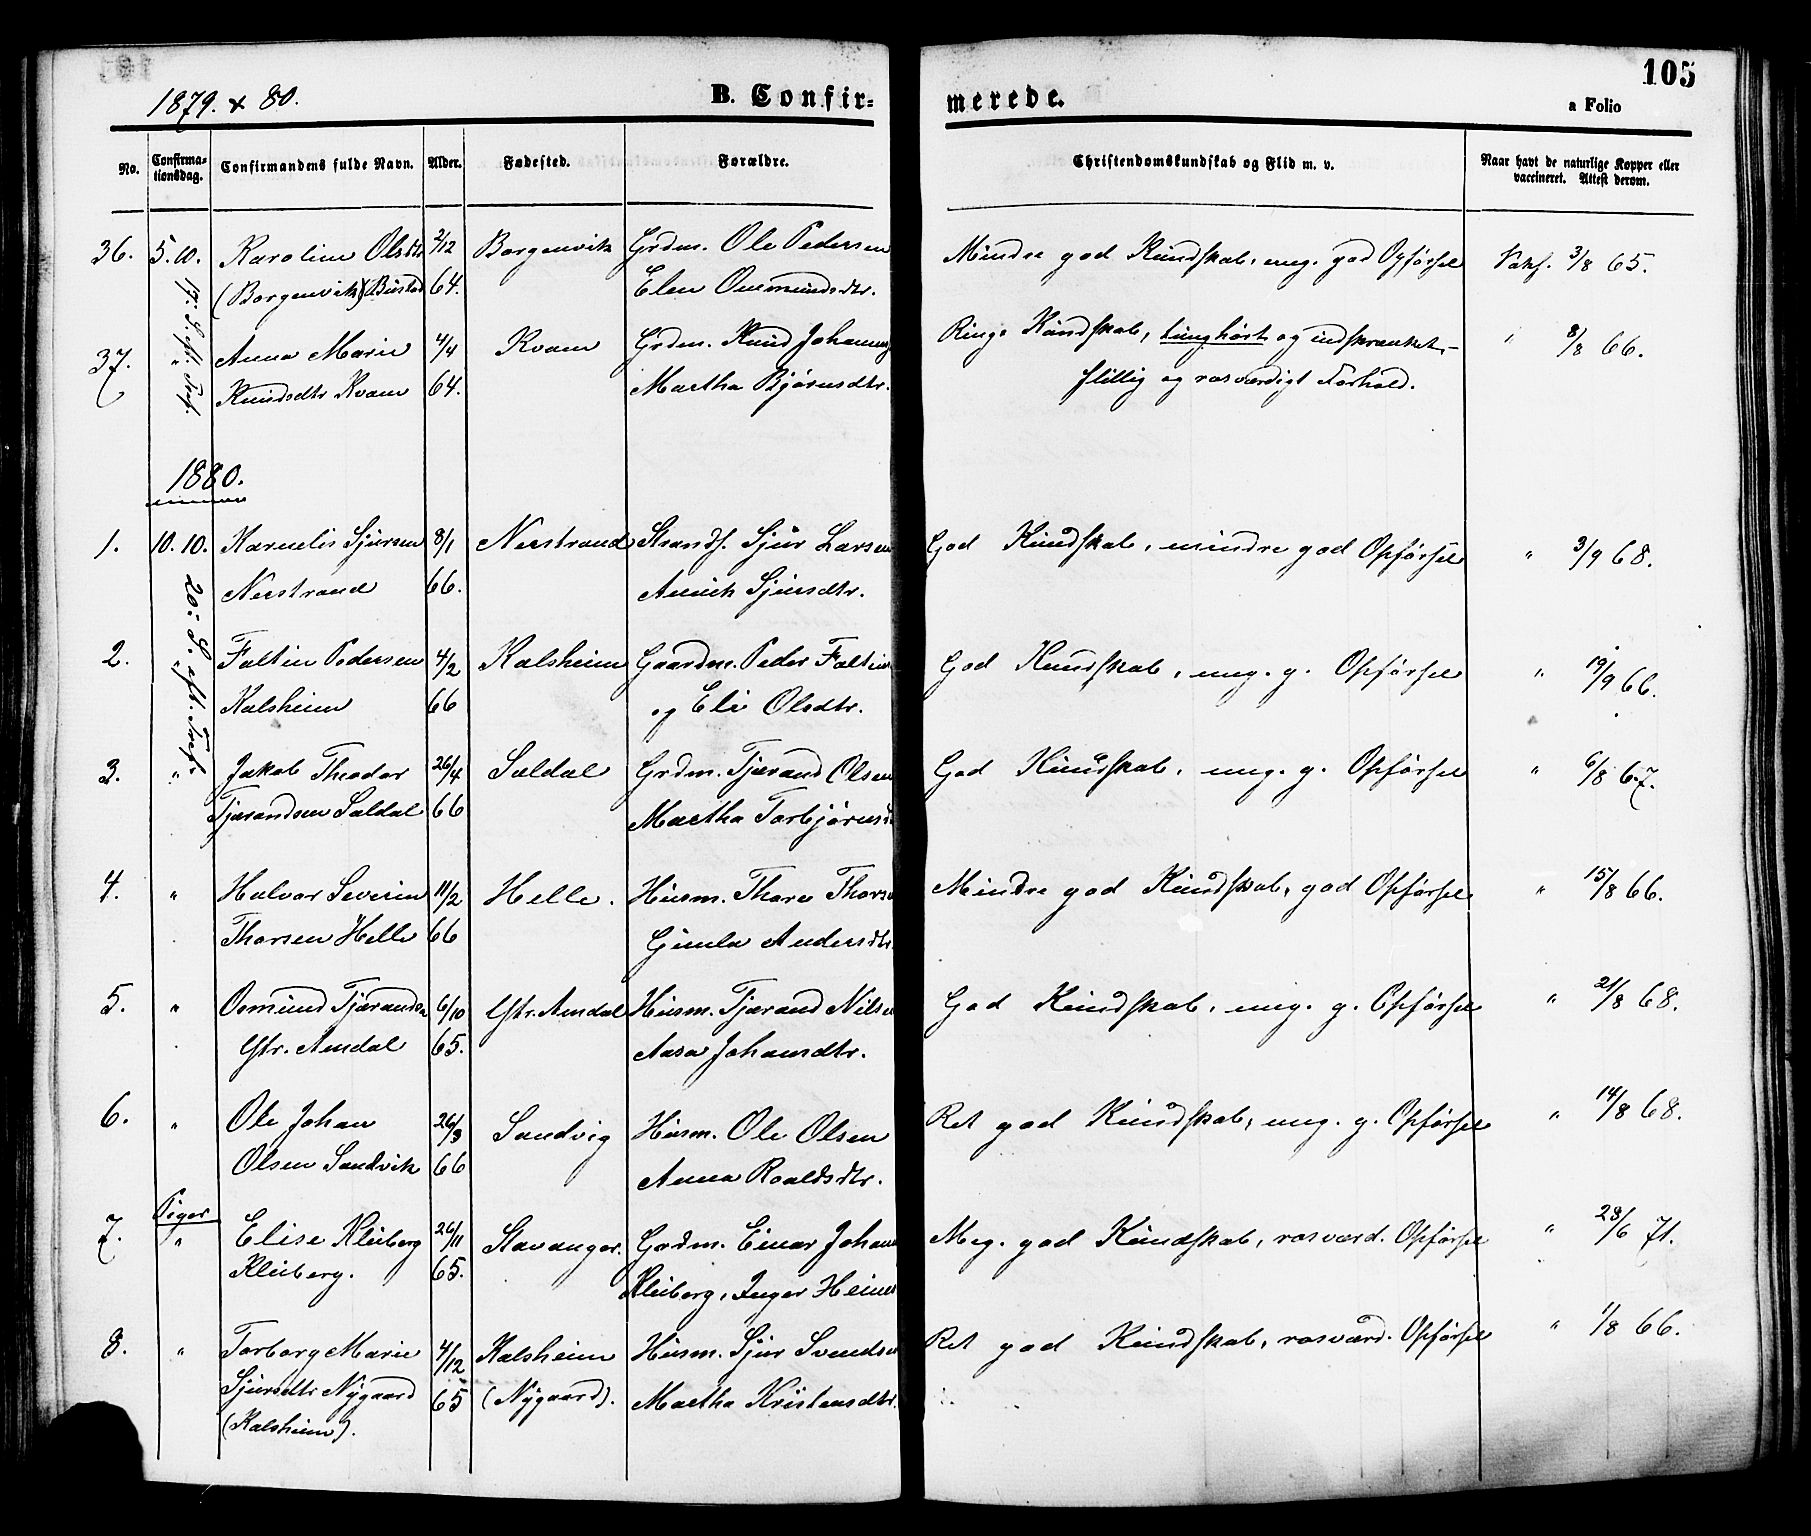 105
1879. & 80.
B. Confir-
merede.
a Folio
No.
Confirma-
tionsdag.
Confirmandens fulde Navn.
Alder.
Fødested.
Forældre.
Christendomskundskab og Flid m. v.
Naar havt de naturlige Kopper eller
vaccineret. Attest derom.
36. 5.10. Karoline Olsdtr 2/12 Borgenvik Grdm. Ole Pedersen Mindre god Kundskab, meg. god Opførsel Vakc. 3/8 65.
(Borgenvik) (Bustad 64. Elen Osmundsdtr.
17. S. eft. Tref.
37. " Anna Marie 4/4 Kvam Grdm. Knud Johannes Ringe Kundskab, tunghørt og indskrænket, - " 8/8 66.
Knudsdtr Kvam 64. Martha Bjørnsdtr. flittig og rosværdigt Forhold.
1880.
1. 10.10. Kornelis Sjursen 8/1 Nerstrand Strands. Sjur Larsen God Kundskab, mindre god Opførsel " 3/9 68.
Nerstrand 66. Annik Sjursdtr.
20. S. eft. Tref.
2. " Faltin Pedersen 4/2 Kalsheim Gaardm. Peder Faltins God Kundskab, meg. g. Opførsel " 19/9 66.
Kalsheim 66 og Eli Olsdtr.
3. " Jakob Theodor 26/4 Saldal Grdm. Tjærand Olsen God Kundskab, meg. g. Opførsel " 6/8 67.
Tjærandsen Saldal 66 Martha Torbjørnsd
4. " Halvor Severin 11/2 Helle. Husm. Thore Thorse Mindre god Kundskab, god Opførsel " 15/8 66.
Thorsen Helle 66 Gunla Andersdtr.
5. " Osmund Tjærandsen 6/10 Ystr. Amdal Husm. Tjærand Nilse God Kundskab, meg. g. Opførsel " 21/8 68.
Ystr. Amdal 65. Aasa Johansdtr.
6. " Ole Johan 26/3 Sandvig Husm. Ole Olsen Ret god Kundskab, meg. g. Opførsel " 14/8 68.
Olsen Sandvik 66 Anna Roaldsdtr.
Piger
7. " Elise Kleiberg 26/11 Stavanger. Grdm. Einar Johan Meg. god Kundskab, rosværd. Opførsel " 28/6 71.
Kleiberg. 65. Kleiberg, Inger Heine
8. " Torborg Marie 4/12 Kalsheim Husm. Sjur Svendse Ret god Kundskab, rosværd. Opførsel " 1/8 66.
Sjursdtr Nygaard 65 (Nygaard). Martha Kristensdtr.
(Kalsheim).